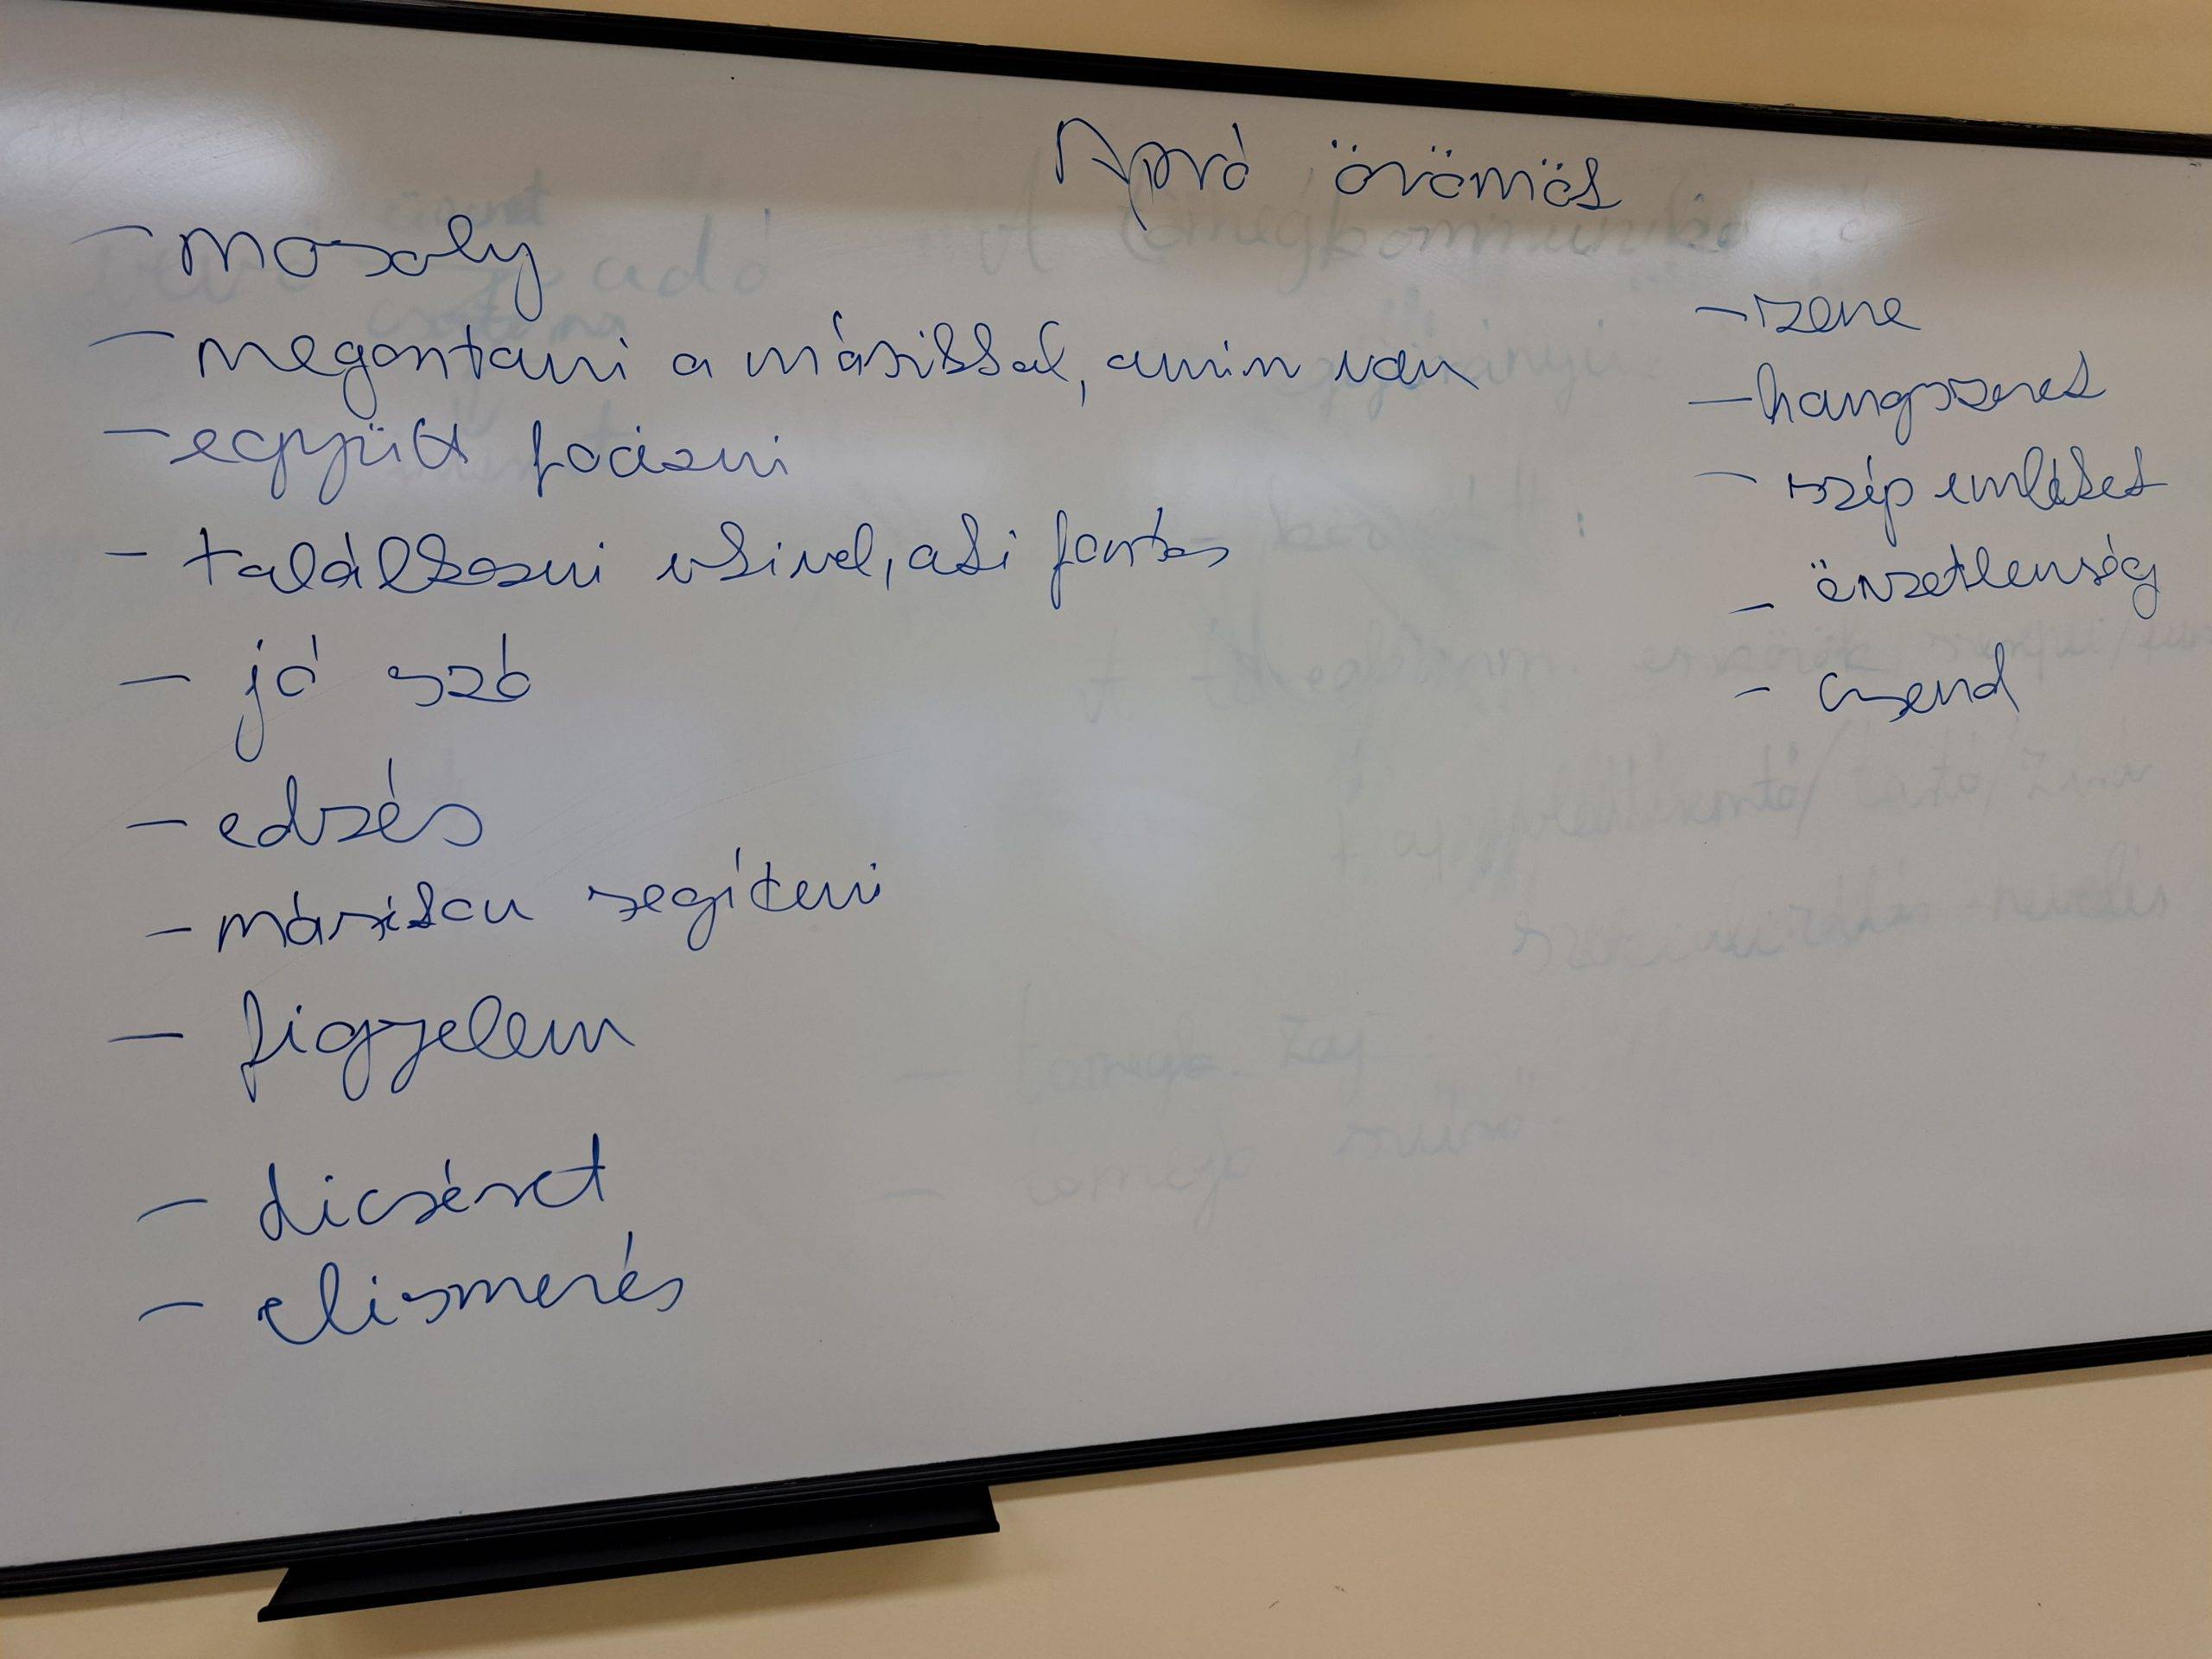 Apró örömök
- mosoly
- megosztani a másikkal, amim van
- együtt focizni
- találkozni vkivel, aki fontos
- jó szó
- edzés
- másikon segíteni
- figyelem
- dicséret
- elismerés
- zene
- hangszerek
- szép emlékek
- önzetlenség
- csend